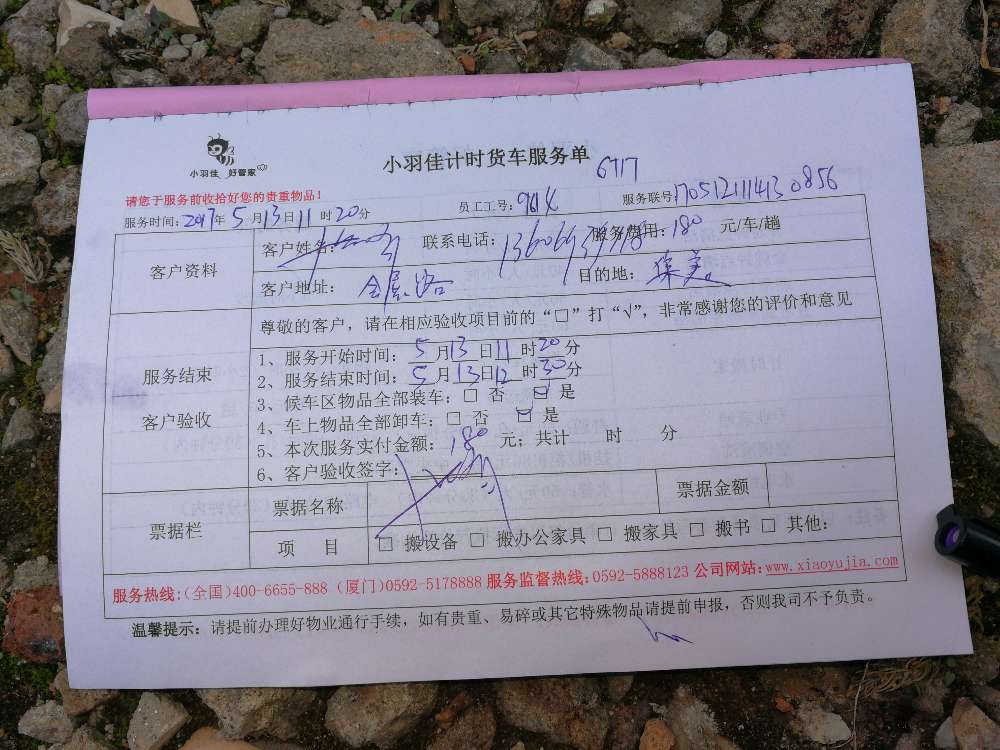 小羽佳 好管家
小羽佳计时货车服务单
6717
请您于服务前收拾好您的贵重物品！
服务时间：2017年5月13日11时20分 员工工号：9614 服务联号1705121114130856
客户资料
客户姓名： 联系电话： 服务费用：180 元/车/趟
客户地址： 目的地：集美
服务结束
客户验收
尊敬的客户，请在相应验收项目前的“□”打“√”，非常感谢您的评价和意见
1、服务开始时间：5月13日11时20分
2、服务结束时间：5月13日12时30分
3、候车区物品全部装车：□ 否 □ 是
4、车上物品全部卸车：□ 否 □ 是
5、本次服务实付金额：180 元；共计 时 分
6、客户验收签字：
票据栏
票据名称 票据金额
项 目 □ 搬设备 □ 搬办公家具 □ 搬家具 □ 搬书 □ 其他：
服务热线：(全国)400-6655-888 (厦门)0592-5178888 服务监督热线：0592-5888123 公司网站：www.xiaoyujia.com
温馨提示：请提前办理好物业通行手续，如有贵重、易碎或其它特殊物品请提前申报，否则我司不予负责。